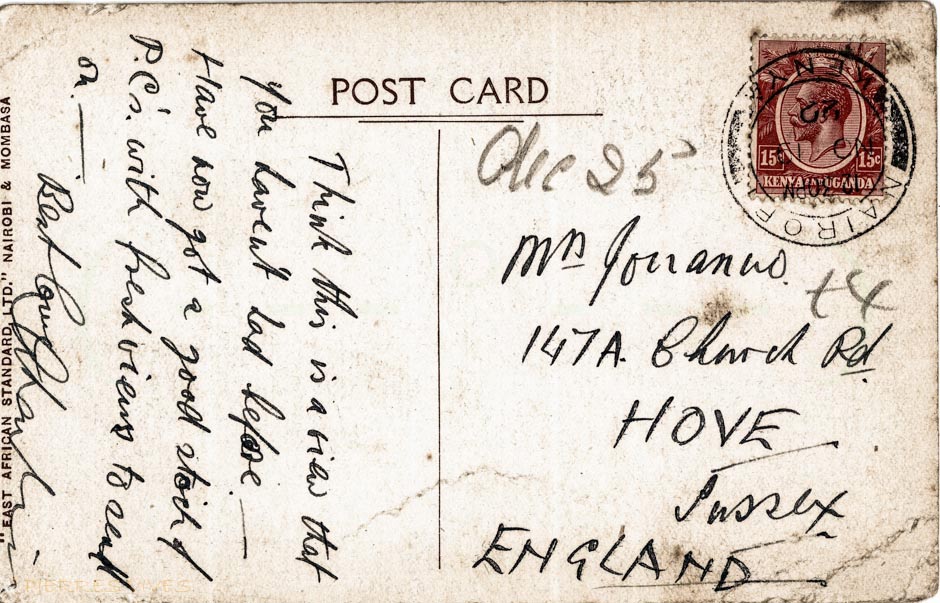 POST CARD
Think this is a view that
you havent had before. —
Have now got a good stock of
P.C's. with fresh views to send
on. —
Best
"EAST AFRICAN STANDARD, LTD." NAIROBI & MOMBASA
Dec 25
+4
Mrs
147A. Church Rd.
HOVE
Sussex
ENGLAND
15c 15c
KENYA AND UGANDA
NAIROBI
KENYA